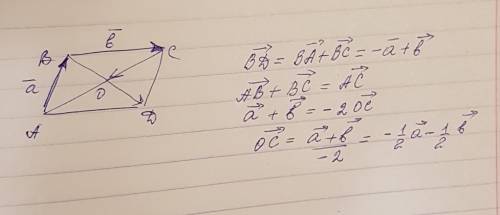 b̅
B
C
a̅
O
A
D
B⃗D = B⃗A + B⃗C = -a⃗ + b⃗
A⃗B + B⃗C = A⃗C
a⃗ + b⃗ = -2 O⃗C
O⃗C = (a⃗ + b⃗)/-2 = -1/2 a⃗ - 1/2 b⃗